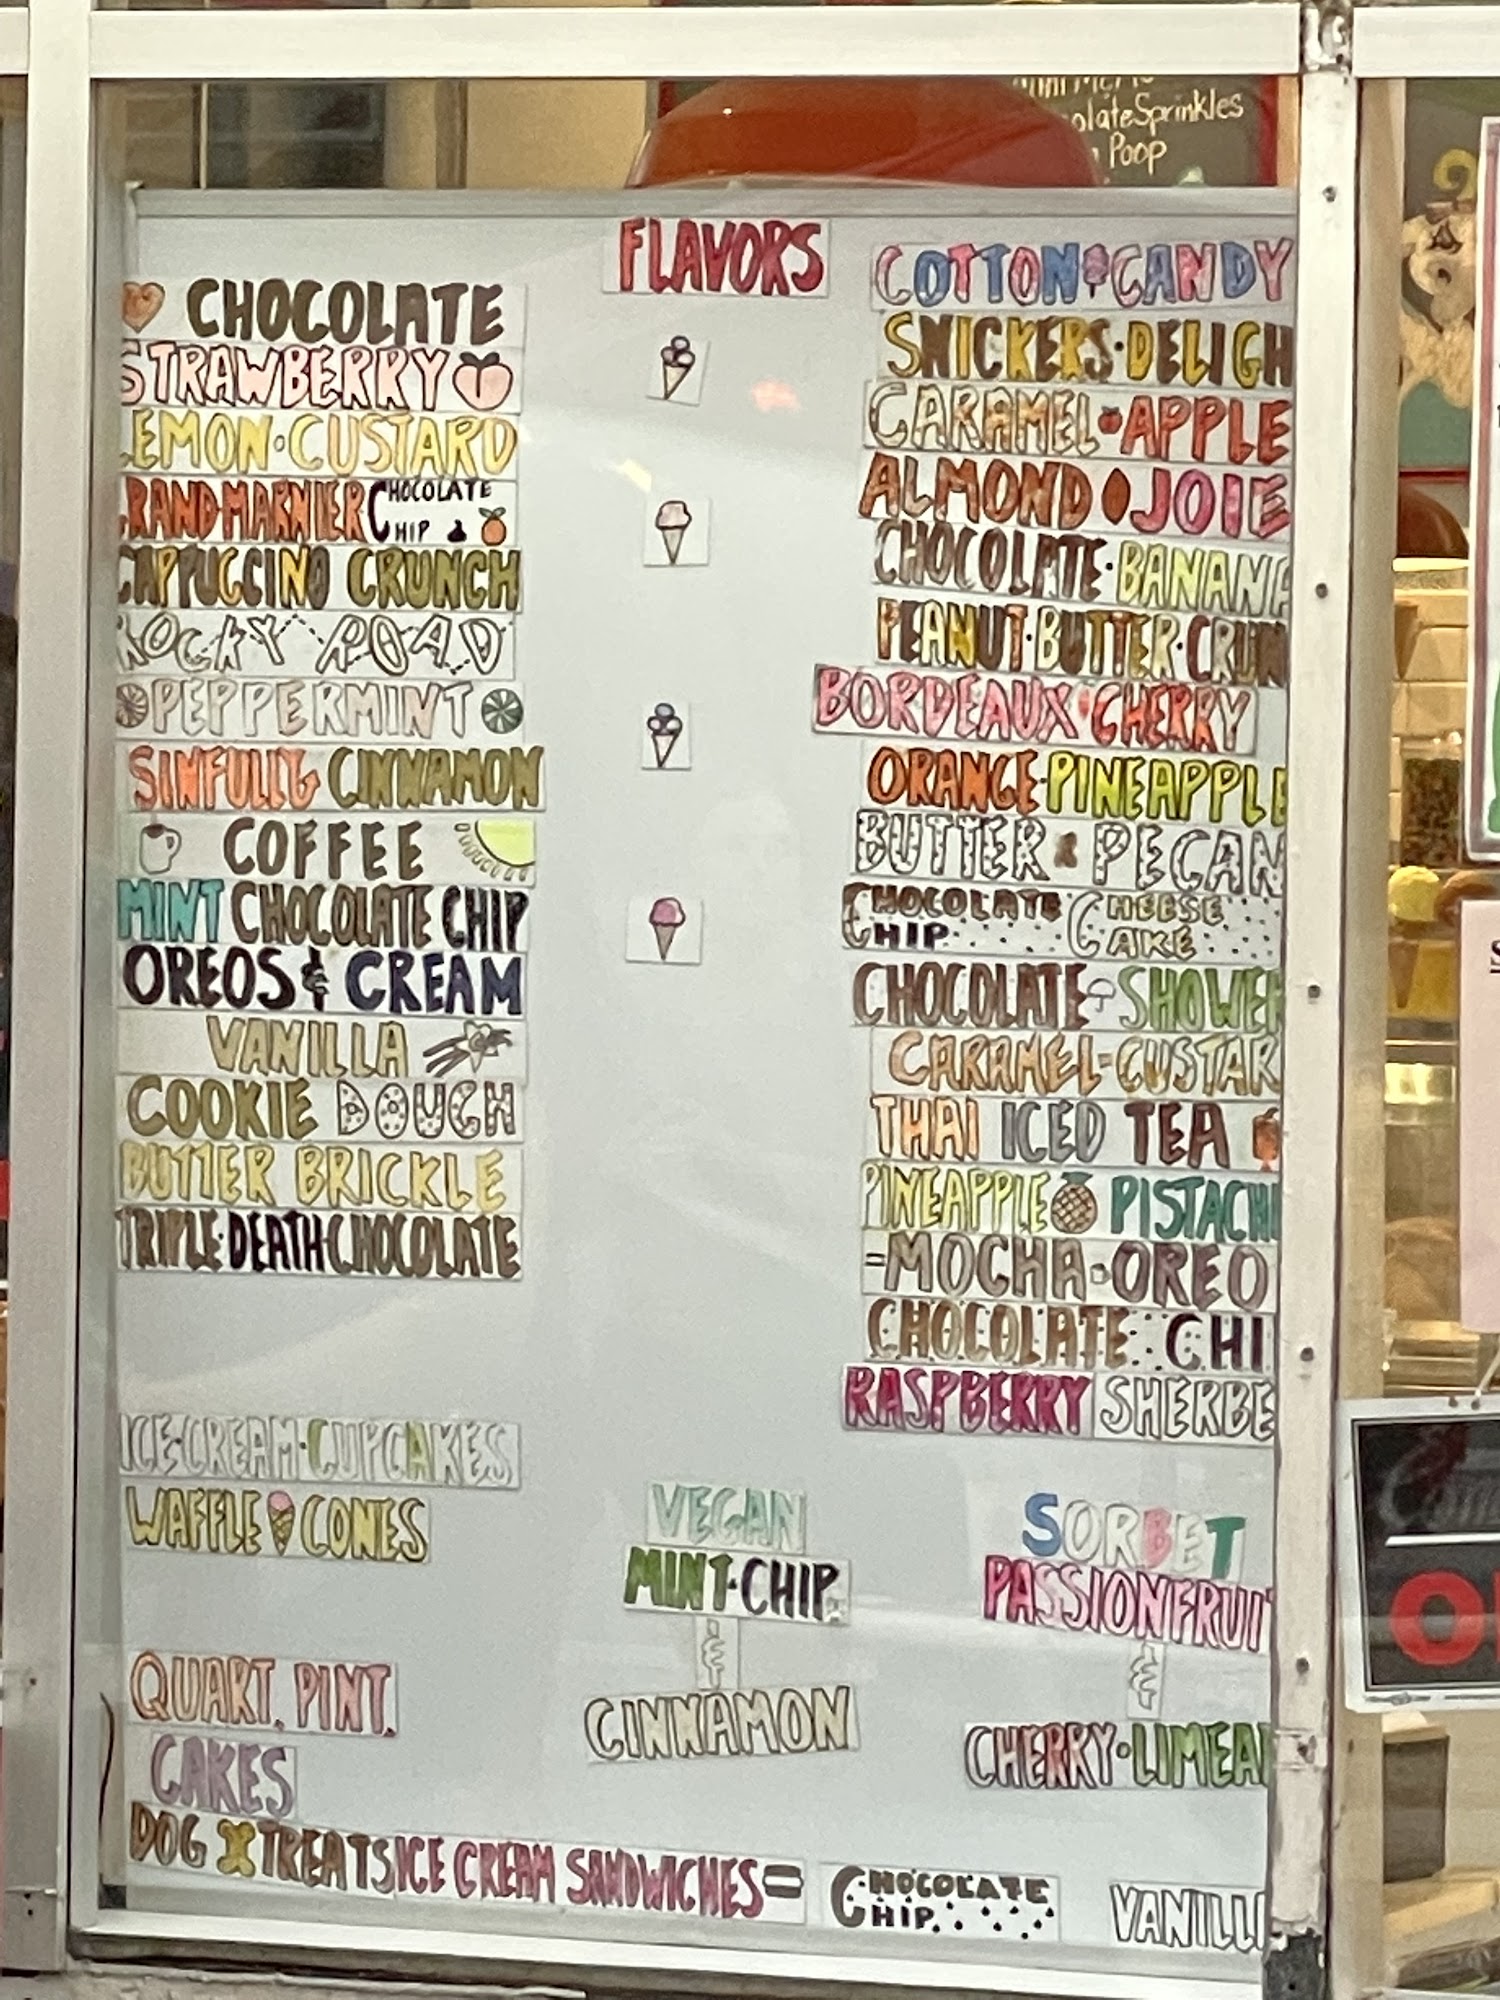 olateSprinkles
Poop
FLAVORS
CHOCOLATE
STRAWBERRY
LEMON·CUSTARD
RAND·MARNIER CHOCOLATE CHIP
CAPPUCCINO CRUNCH
ROCKY ROAD
PEPPERMINT
SINFULLY CINNAMON
COFFEE
MINT CHOCOLATE CHIP
OREOS & CREAM
VANILLA
COOKIE DOUGH
BUTTER BRICKLE
TRIPLE·DEATH·CHOCOLATE
ICE·CREAM·CUPCAKES
WAFFLE CONES
QUART. PINT.
CAKES
DOG TREATS ICE CREAM SANDWICHES= CHOCOLATE CHIP VANILL
VEGAN
MINT·CHIP
&
CINNAMON
COTTON CANDY
SNICKERS·DELIGH
CARAMEL APPLE
ALMOND JOIE
CHOCOLATE·BANANA
PEANUT·BUTTER·CRUN
BORDEAUX CHERRY
ORANGE·PINEAPPLE
BUTTER PECAN
CHOCOLATE CHIP CHEESE CAKE
CHOCOLATE SHOWER
CARAMEL-CUSTAR
THAI ICED TEA
PINEAPPLE PISTACHI
=MOCHA OREO
CHOCOLATE CHI
RASPBERRY SHERBE
SORBET
PASSIONFRUIT
&
CHERRY·LIMEA